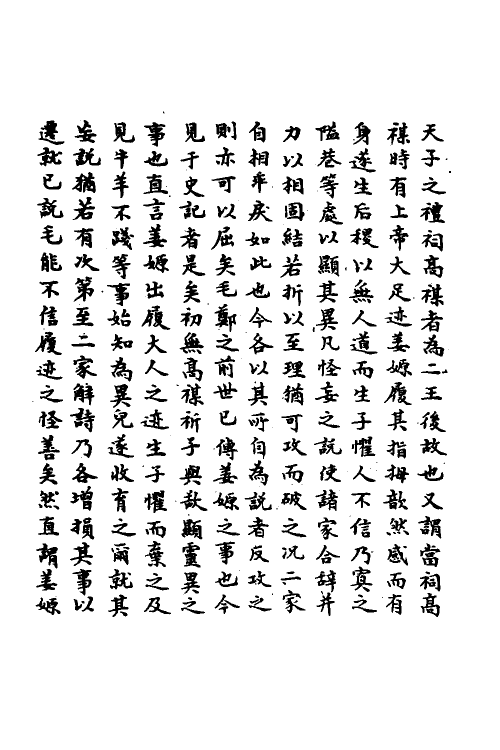 天子之禮祠高禖者為二王後故也又謂當祠高
禖時有上帝大足迹姜嫄履其指拇歆然感而有
身遂生后稷以無人道而生子懼人不信乃寘之
隘巷等處以顯其異凡怪妄之說使諸家合辭并
力以相固結若折以至理猶可攻而破之况二家
自相乖戾如此也今各以其所自為說者反攻之
則亦可以屈矣毛鄭之前世已傳姜嫄之事也今
見于史記者是矣初無高禖祈子與欲顯靈異之
事也直言姜嫄出履大人之迹生子懼而棄之及
見牛羊不踐等事始知為異兒遂收育之爾就其
妄說猶若有次第至二家解詩乃各增損其事以
遷就已說毛能不信履迹之怪善矣然直謂姜嫄